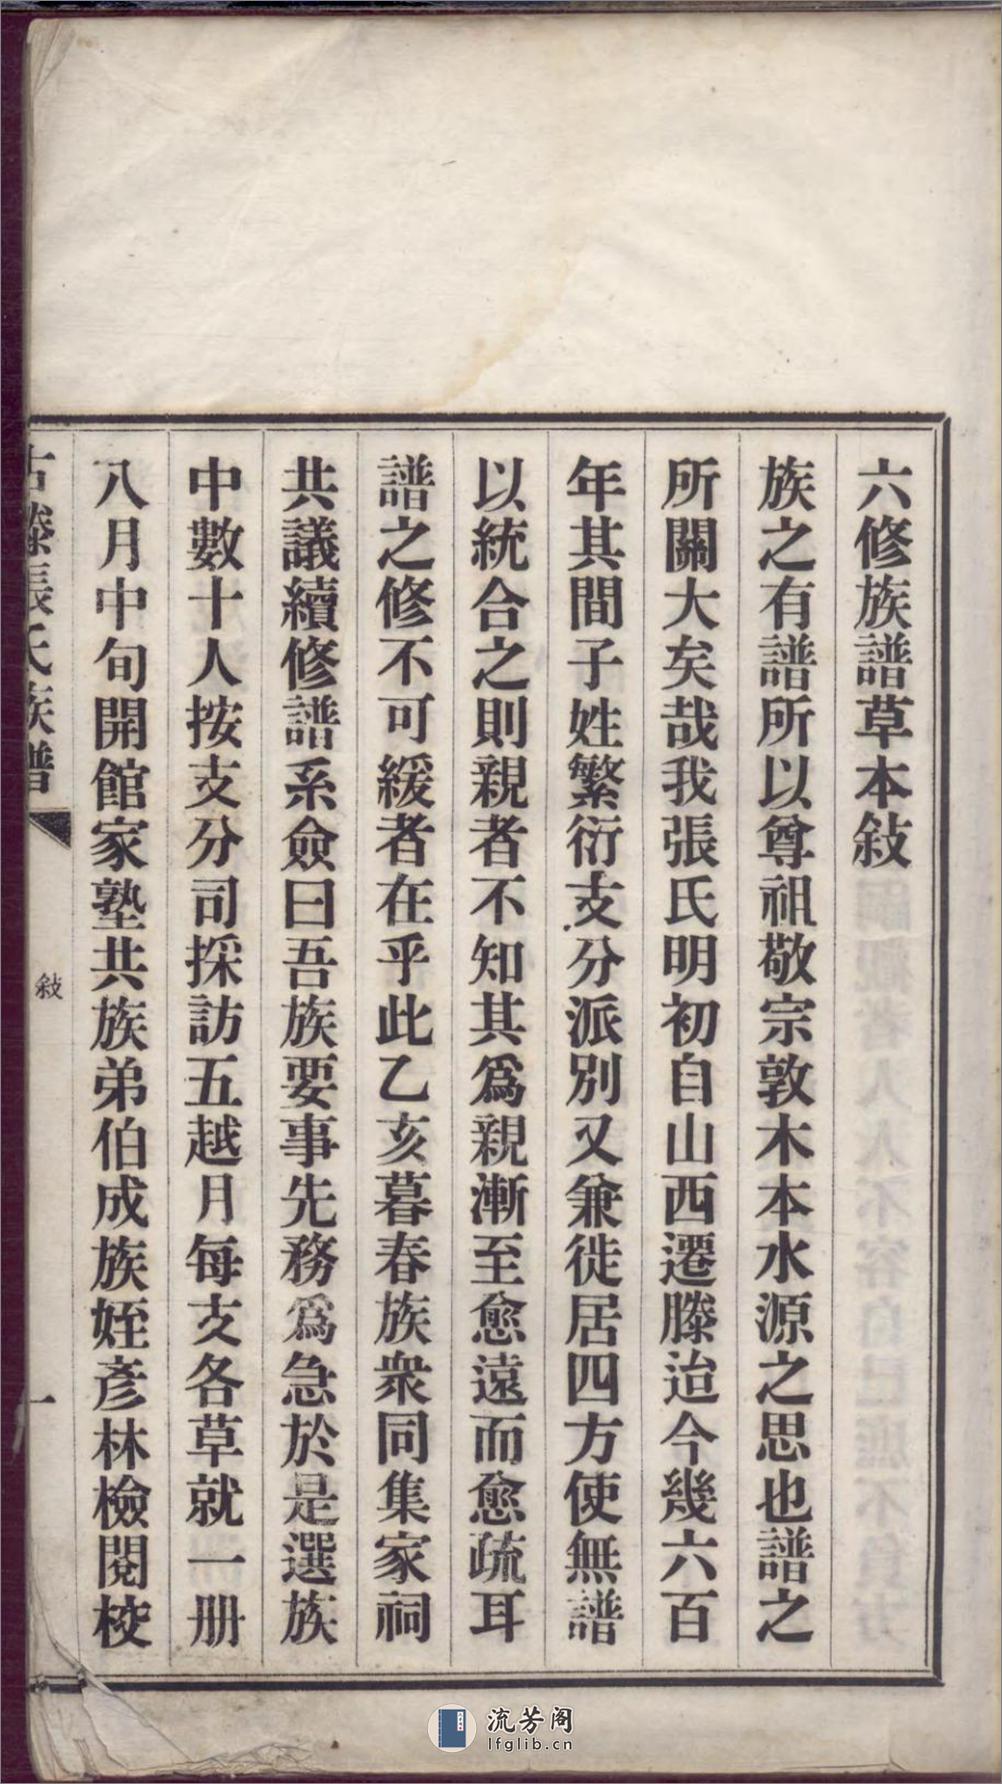 六修族譜草本敍
族之有譜所以尊祖敬宗敦木本水源之思也譜之
所關大矣哉我張氏明初自山西遷滕迨今幾六百
年其間子姓繁衍支分派別又兼徙居四方使無譜
以統合之則親者不知其爲親漸至愈遠而愈疏耳
譜之修不可緩者在乎此乙亥暮春族衆同集家祠
共議續修譜系僉曰吾族要事先務爲急於是選族
中數十人按支分司採訪五越月每支各草就一册
八月中旬開館家塾共族弟伯成族姪彥林檢閱校
古滕張氏族譜
敍
一
流芳阁
lfglib.cn